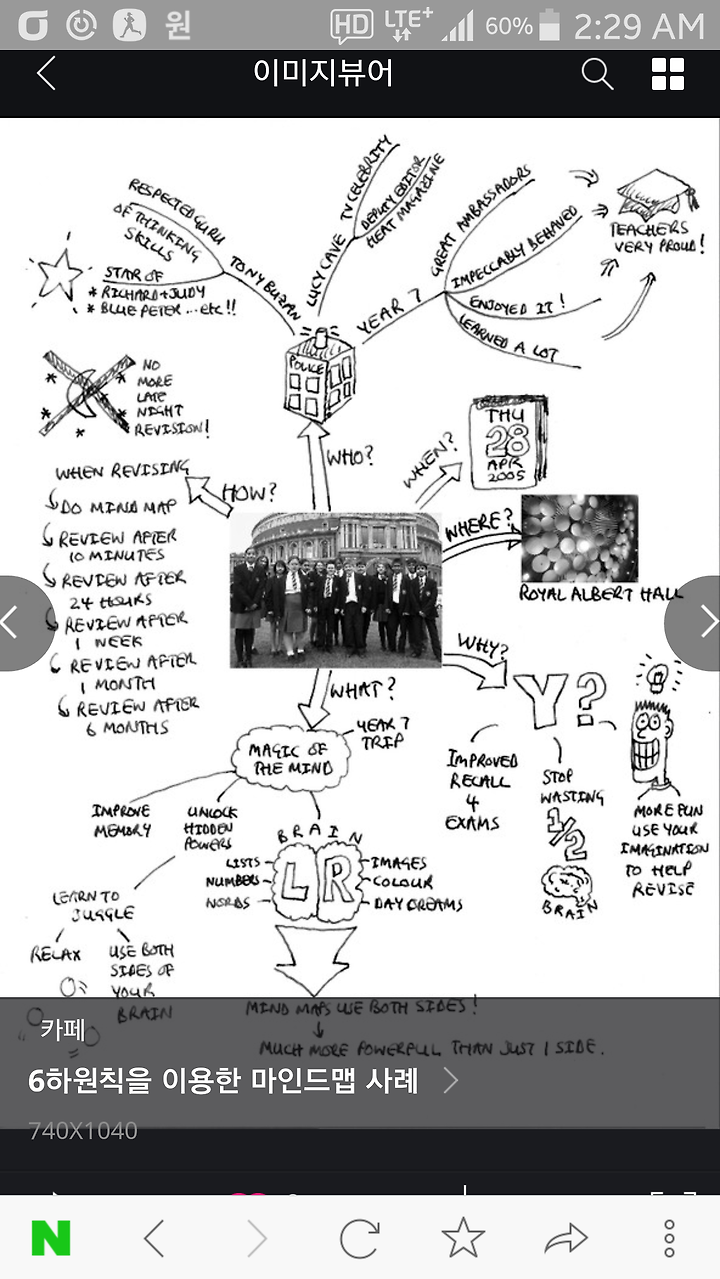 원 HD LTE+ 60% 2:29 AM
이미지뷰어
RESPECTED GURU
OF THINKING
SKILLS
STAR OF
* RICHARD + JUDY
* BLUE PETER ... etc!!
TONY BUZAN
LUCY CAVE
TV CELEBRITY
DEPUTY EDITOR
HEAT MAGAZINE
YEAR 7
GREAT AMBASSADORS
IMPECCABLY BEHAVED
ENJOYED IT!
LEARNED A LOT
TEACHERS
VERY PROUD!
POLICE
WHO?
NO
MORE
LATE
NIGHT
REVISION!
HOW?
WHEN REVISING
DO MIND MAP
REVIEW AFTER
10 MINUTES
REVIEW AFTER
24 HOURS
REVIEW AFTER
1 WEEK
REVIEW AFTER
1 MONTH
REVIEW AFTER
6 MONTHS
WHEN?
THU
28
APR
2005
WHERE?
ROYAL ALBERT HALL
WHY?
Y?
IMPROVED
RECALL
4
EXAMS
STOP
WASTING
1/2
BRAIN
MORE FUN
USE YOUR
IMAGINATION
TO HELP
REVISE
WHAT?
YEAR 7
TRIP
MAGIC OF
THE MIND
IMPROVE
MEMORY
UNLOCK
HIDDEN
POWERS
LEARN TO
JUGGLE
RELAX
USE BOTH
SIDES OF
YOUR
BRAIN
BRAIN
L R
LISTS
NUMBERS
WORDS
IMAGES
COLOUR
DAY DREAMS
MIND MAPS USE BOTH SIDES!
MUCH MORE POWERFULL THAN JUST 1 SIDE.
카페
6하원칙을 이용한 마인드맵 사례
740X1040
N